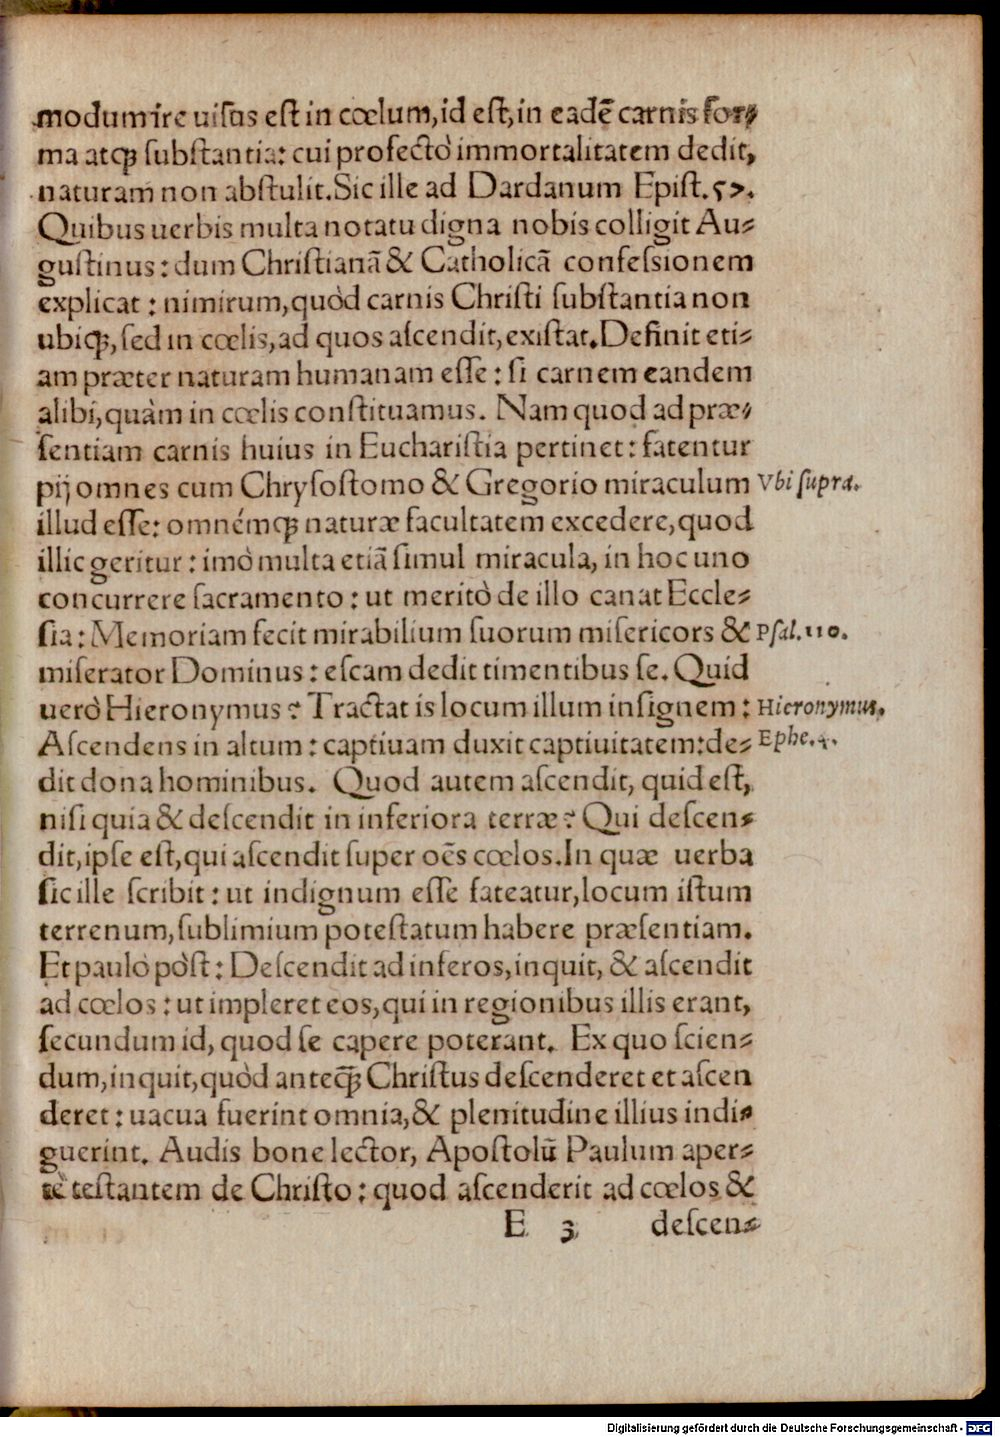 modum ire uisus est in cœlum, id est, in eadē carnis for⸗
ma atq; substantia: cui profectò immortalitatem dedit,
naturam non abstulit. Sic ille ad Dardanum Epist. 57.
Quibus uerbis multa notatu digna nobis colligit Au⸗
gustinus: dum Christianā & Catholicā confessionem
explicat: nimirum, quòd carnis Christi substantia non
ubiq;, sed in cœlis, ad quos ascendit, existat. Definit eti⸗
am præter naturam humanam esse: si carnem eandem
alibi, quàm in cœlis constituamus. Nam quod ad præ⸗
sentiam carnis huius in Eucharistia pertinet: fatentur
pij omnes cum Chrysostomo & Gregorio miraculum Vbi supra.
illud esse: omnémq; naturæ facultatem excedere, quod
illic geritur: imò multa etiā simul miracula, in hoc uno
concurrere sacramento: ut meritò de illo canat Eccle⸗
sia: Memoriam fecit mirabilium suorum misericors & Psal. 110.
miserator Dominus: escam dedit timentibus se. Quid
uerò Hieronymus? Tractat is locum illum insignem: Hieronymus.
Ascendens in altum: captiuam duxit captiuitatem: de⸗ Ephe. 4.
dit dona hominibus. Quod autem ascendit, quid est,
nisi quia & descendit in inferiora terræ? Qui descen⸗
dit, ipse est, qui ascendit super oēs cœlos. In quæ uerba
sic ille scribit: ut indignum esse fateatur, locum istum
terrenum, sublimium potestatum habere præsentiam.
Et paulò pòst: Descendit ad inferos, inquit, & ascendit
ad cœlos: ut impleret eos, qui in regionibus illis erant,
secundum id, quod se capere poterant. Ex quo scien⸗
dum, inquit, quòd anteq̃; Christus descenderet et ascen
deret: uacua fuerint omnia, & plenitudine illius indi⸗
guerint. Audis bone lector, Apostolū Paulum aper⸗
tè testantem de Christo: quod ascenderit ad cœlos &
E 3 descen⸗
Digitalisierung gefördert durch die Deutsche Forschungsgemeinschaft - DFG